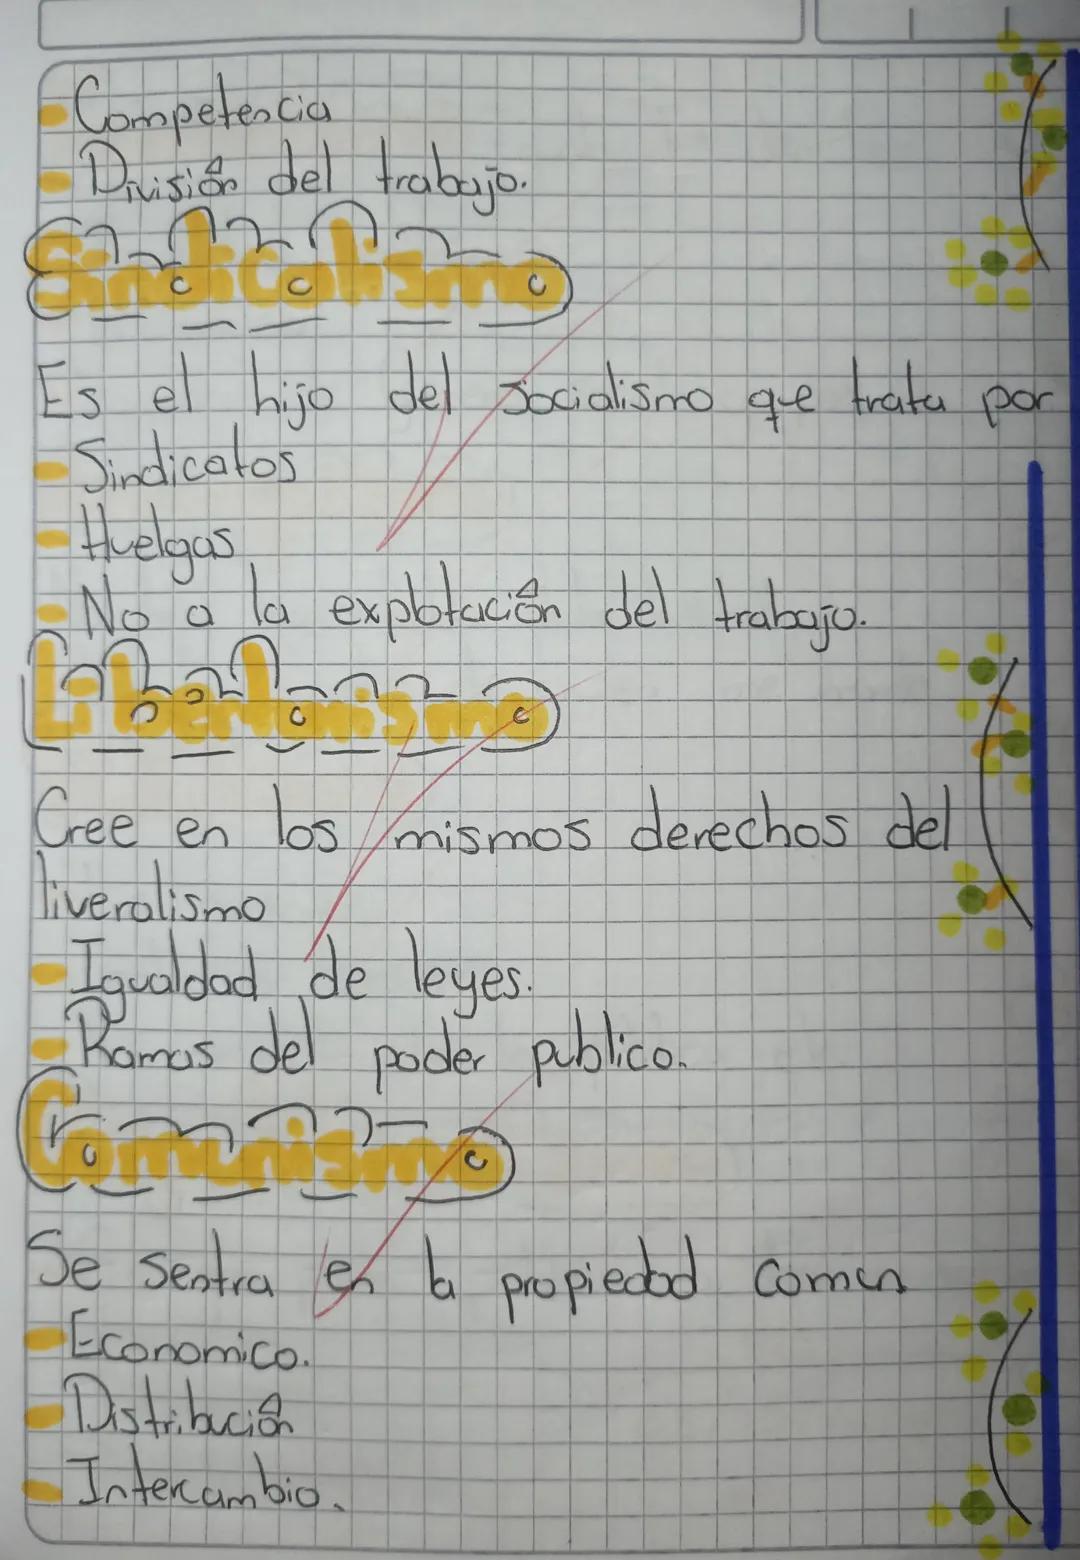 - Competencia
- División del trabajo.
Sindicalismo
Es el hijo del socialismo que trata por
- Sindicatos
- Huelgas
- No a la explotación del trabajo.
Libertanismo
Cree en los mismos derechos del
liveralismo
- Igualdad de leyes.
- Ramas del poder publico.
Comunismo
Se sentra en la propiedad comun
- Economico.
- Distribución
- Intercambio.